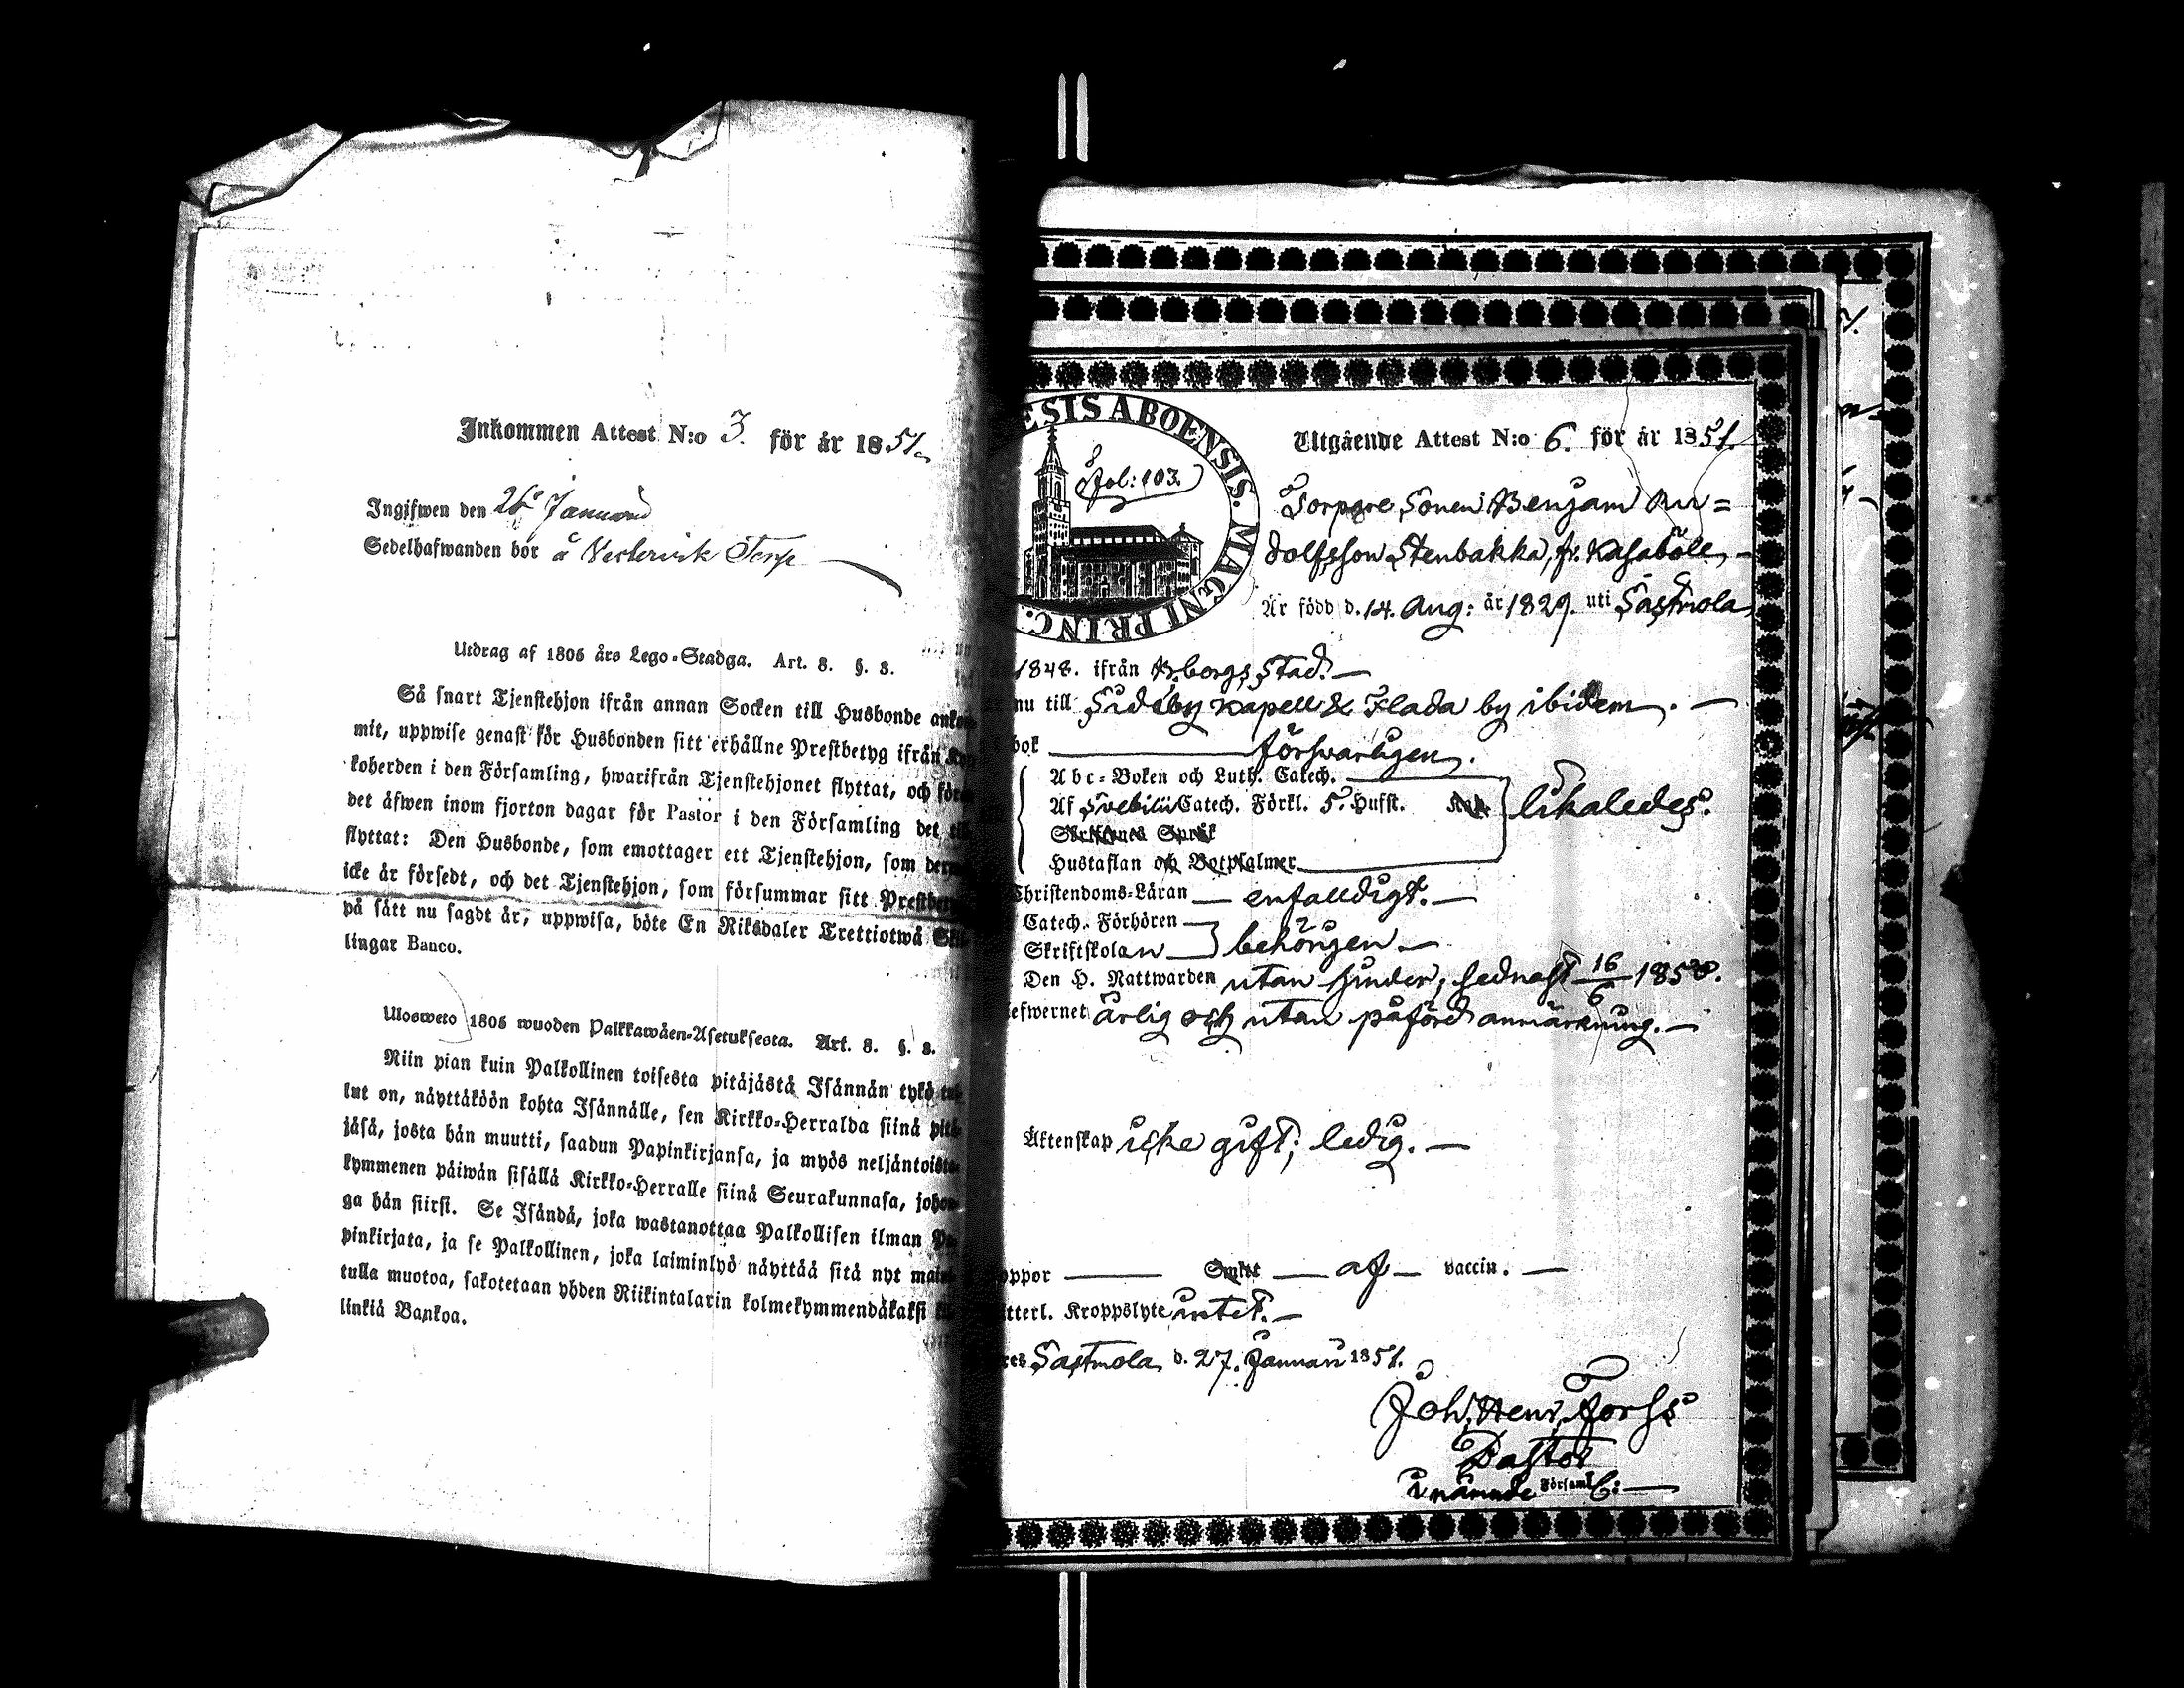 Inkommen Attest N:o 3. för år 1851.
Ingifwen den Januari
Sedelhafwanden bor å Vestervik Torp
Utdrag af 1805 års Lego-Stadga. Art. 8. §. 8.
Så snart Tjenstehjon ifrån annan Socken till Husbonde
mit, uppwise genast för Husbonden sitt erhållne Prestbetyg ifrån
koherden i den Församling, hwarifrån Tjenstehjonet flyttat, och
det äfwen inom fjorton dagar för Pastor i den Församling det
flyttat: Den Husbonde, som emottager ett Tjenstehjon, som
icke är försedt, och det Tjenstehjon, som försummar sitt
på sätt nu sagdt är, uppwisa, böte En Riksdaler Trettiotwå
lingar Banco.
Ulosweto 1805 wuoden Palkkawäen-Asetuksesta. Art. 8. §. 8.
Niin pian kuin Palkollinen toisesta pitäjästä Isännän tykö
lut on, näyttäköön kohta Isännälle, sen Kirkko-Herralda siinä
jäsä, josta hän muutti, saadun Papinkirjansa, ja myös neljäntoista
kymmenen päiwän sisällä Kirkko-Herralle siinä Seurakunnasa,
ga hän siirsi. Se Isändä, joka wastanottaa Palkollisen ilman
pinkirjata, ja se Palkollinen, joka laiminlyö näyttää sitä nyt
tulla muotoa, sakotetaan yhden Riikintalarin kolmekymmendäkaksi
linkiä Bankoa.
ESIS ABOENSIS. MAGNI PRINC.
Fol: 103.
Utgående Attest N:o 6. för år 1851.
Torpare Sonen Benjam Ru=
dolfsson Stenbakka, fr. Kasaböle,
Är född d. 14. Aug: år 1829. uti Sastmola
1848. ifrån B:borgs Stad.
nu till Sideby Kapell & Flada by ibidem.
bok försvarligen.
Abc-Boken och Luth. Catech.
Af Svebilii Catech. Förkl. 5. Hufst. likaledes.
Skriftenes Språk
Hustaflan och Botpsalmer
Christendoms-Läran enfalldigt.
Catech. Förhören
Skriftskolan behörigen
Den H. Nattwarden utan hinder, sednast 16/6 1850.
efwernet ärlig och utan påförd anmärkning.
Äktenskap icke gift; ledig.
oppor Smitt af vaccin.
tterl. Kroppslyte intet.
res Sastmola d. 27. Januari 1851.
Joh. Henr. Forss
Pastor
i nämnde Församl: